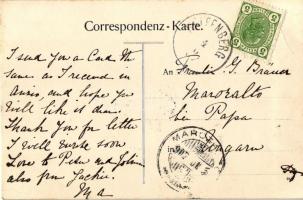 Correspondenz-Karte.
I send you a Card the
same as I received in
and hope you
Will like it dear.
Thank You for letter
I will write soon
Love to Peter and
also from Jackie.
Ma
An Fräulein G. Bräuer
Marozalto
bei Papa
in Ungarn
5
5
5
5